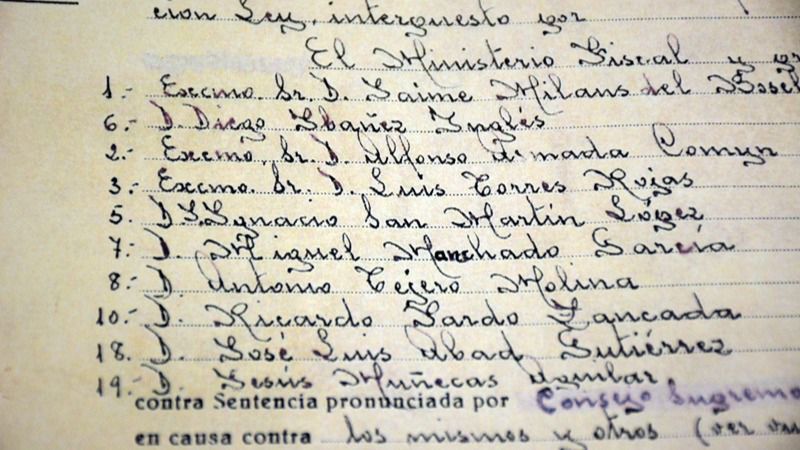 ción Ley, interpuesto por
El Ministerio Fiscal y
1.- Excmo. Sr. D. Jaime Milans del
6.- D. Diego Ibañez Inglés
2.- Excmo. Sr. D. Alfonso Armada Comyn
3.- Excmo. Sr. D. Luis Torres Rojas
5.- D. J. Ignacio San Martín López
7.- D. Miguel Manchado García
8.- D. Antonio Tejero Molina
10.- D. Ricardo Pardo Zancada
18.- D. José Luis Abad Gutiérrez
19.- D. Jesús Muñecas Aguilar,
contra Sentencia pronunciada por Consejo Supremo
en causa contra los mismos y otros (ver